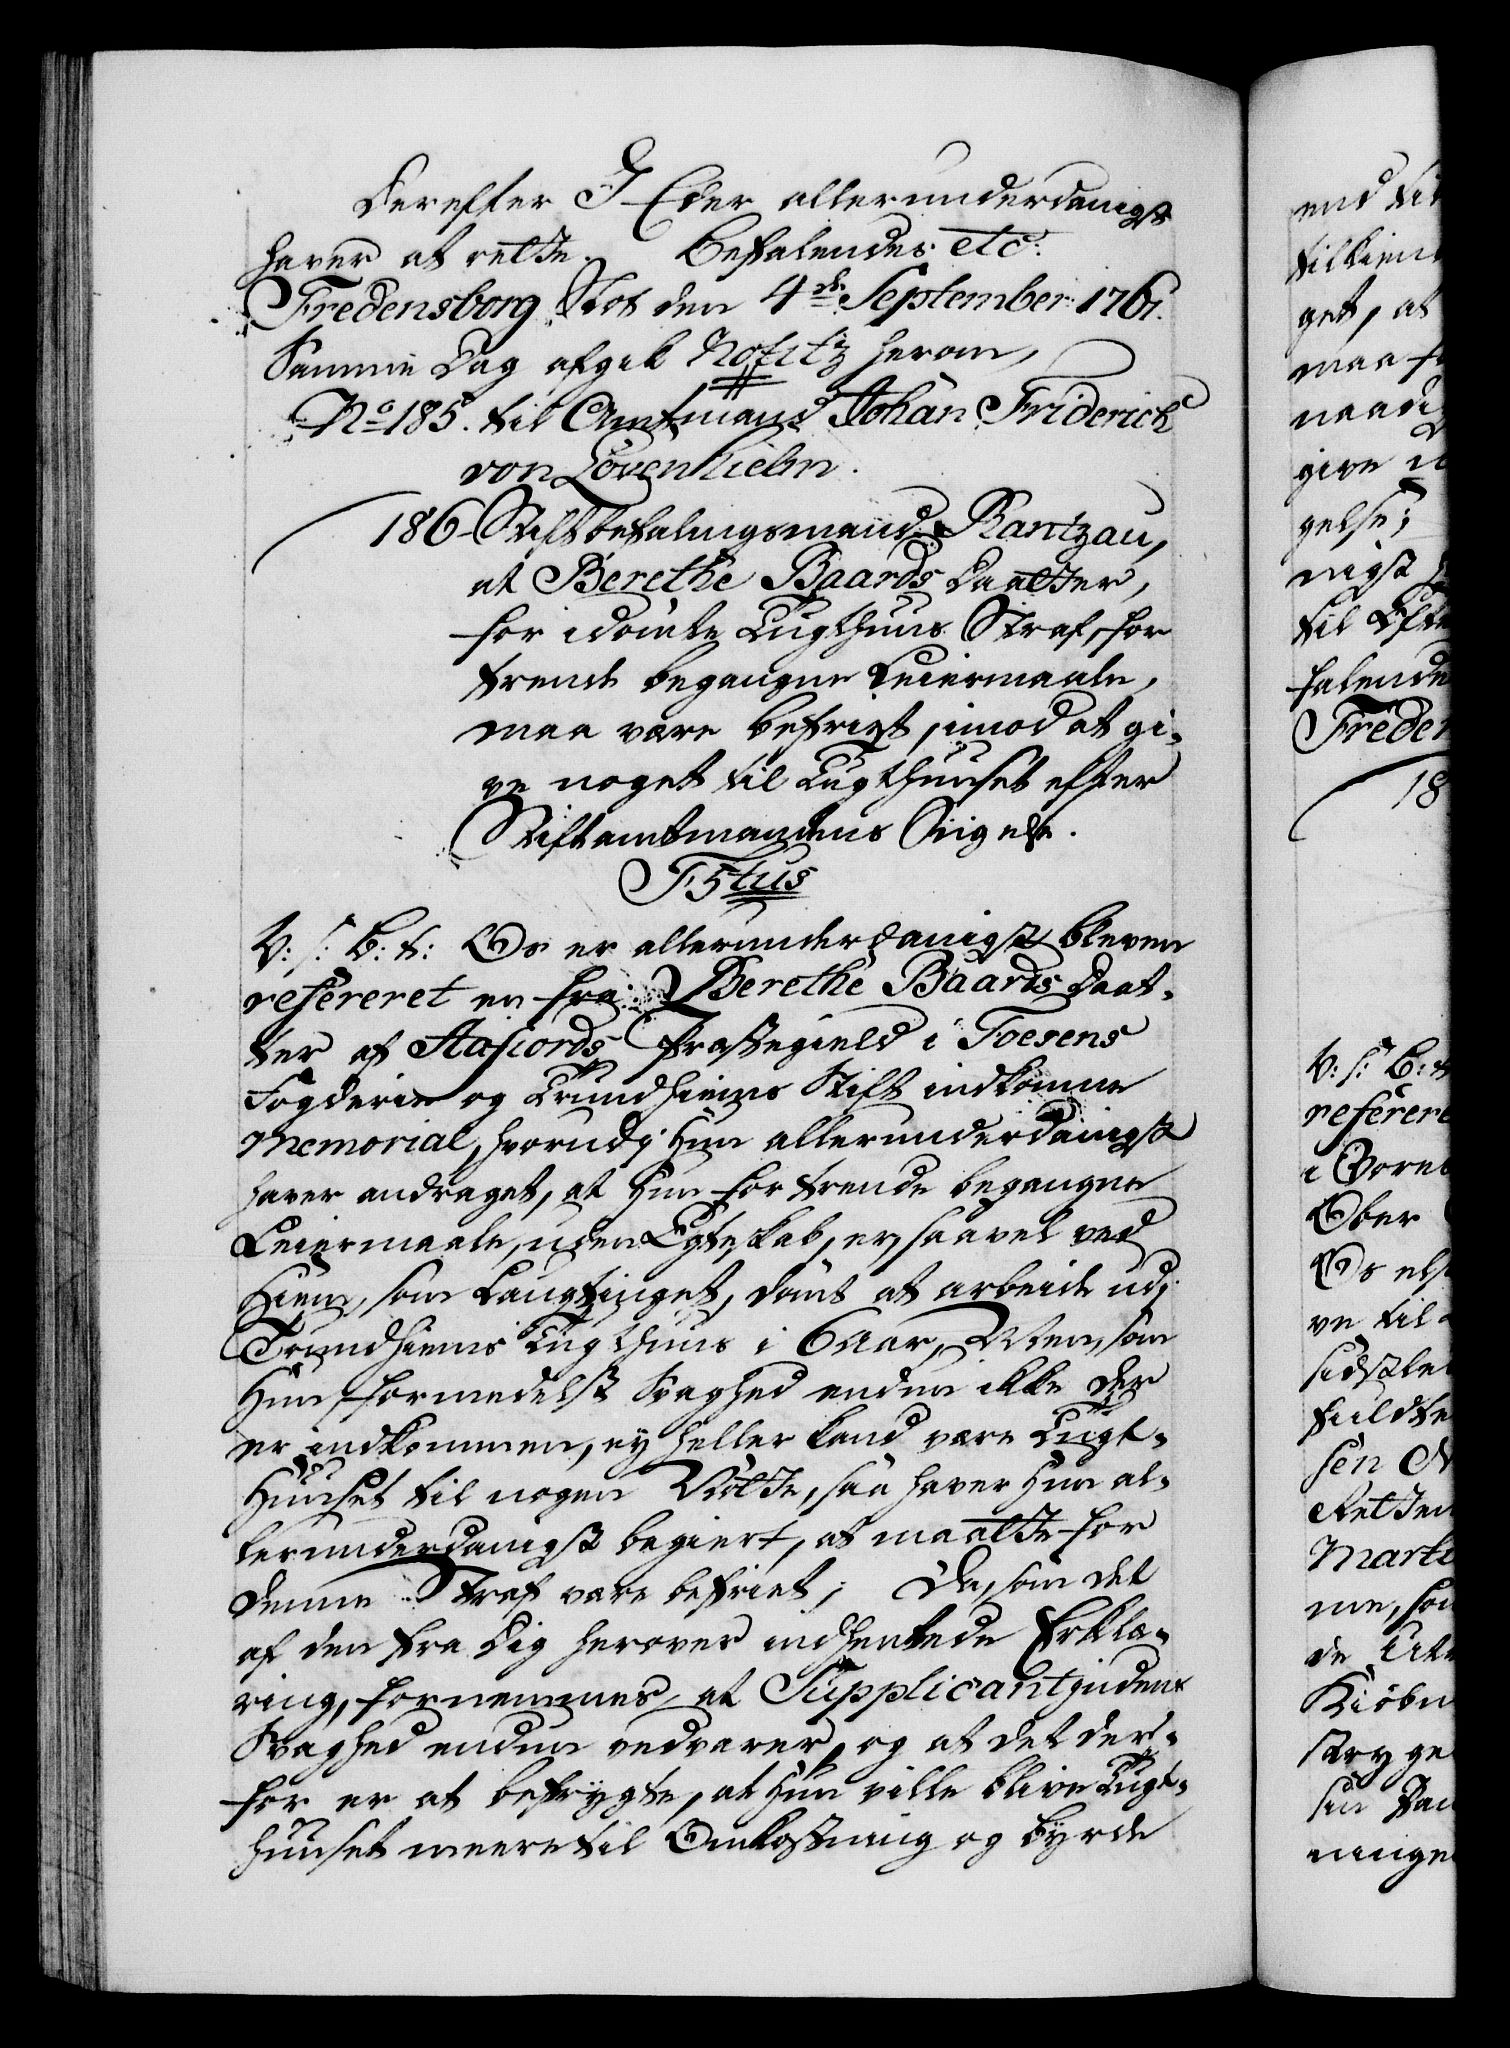 Derefter I Eder allerunderdanigst
haver at rette. Befalendes etc:
Fredensborg Slot den 4de September 1761.
Samme Dag afgik Notitz herom,
No 185. til Amtmand Johan Friderich
von Lövenhielm.
186 Stiftbefalingsmand Rantzau,
at Berethe Baards Daatter,
for idömte Tugthuus Straf, for
trende begangne Leiermaale,
maa være befriet, imod at gi-
ve noget til Tugthuuset efter
Stiftamtmandens Sigelse.
F5tus
V: S: B: t: Os er allerunderdanigst bleven
refereret en fra Berethe Baards Daat-
ter af Stafiords Præstegield i Foesens
Fogderie og Trundhiems Stift indkomne
Memorial, hvorudj Hun allerunderdanigst
haver andraget, at Hun for trende begangne
Leiermaale, uden Egteskab, er, saavel ved
Hiem, som Laugtinget, dömt at arbeide udj
Trundhiems Tugthuus i 6 Aar, Men, som
Hun formedelst Svaghed endnu ikke der
er indkommen, ey heller kand være Tugt-
Huuset til nogen Nötte, saa haver Hun al-
lerunderdanigst begiert, at maatte for
denne Straf være befriet; Da, som det
af den fra Dig herover indhentede Erklæ-
ring, fornemmes, at Supplicantindens
Svaghed endnu vedvarer, og at det der-
for er at befrygte, at Hun ville blive Tugt-
huuset meere til Omkostning og Byrde
end
til
get, at
maa
give
gelse;
nigst
til
falende
Freden
18
V: S: B: t
referere
i
Ober
Os
ve til
sen
Retten
Marti
me, som
de
Kiöbn